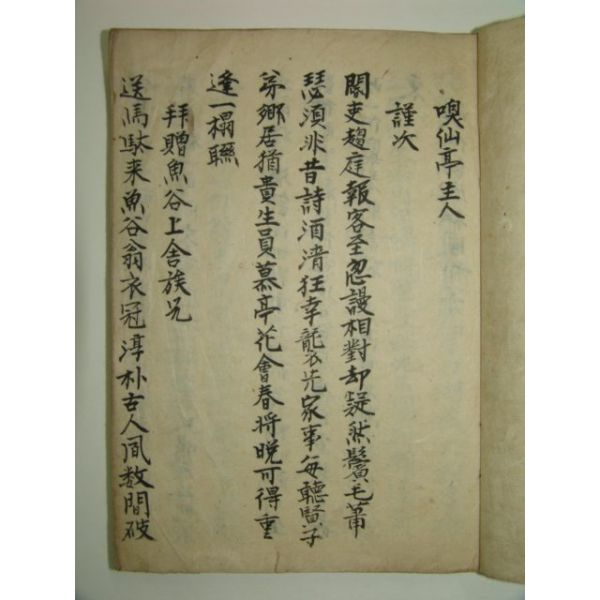 嗅仙亭主人
謹次
閽吏趨庭報客至忽謾相對却凝然鬢毛蕭
瑟須非昔詩酒清狂幸龍先家事每聽賢子
弟鄉居猶貴生員慕亭花會春將晚可得重
逢一榻聯
拜贈魚谷上舍族兄
送馬駄来魚谷翁衣冠淳朴古人風数間破